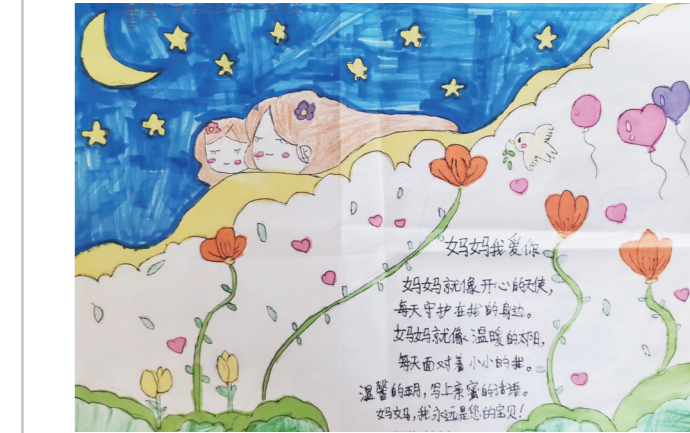 妈妈我爱你
妈妈就像开心的天使,
每天守护在我的身边。
妈妈就像温暖的太阳,
每天面对着小小的我。
温馨的 月,写上亲蜜的话语。
妈妈,我永远是您的宝贝!